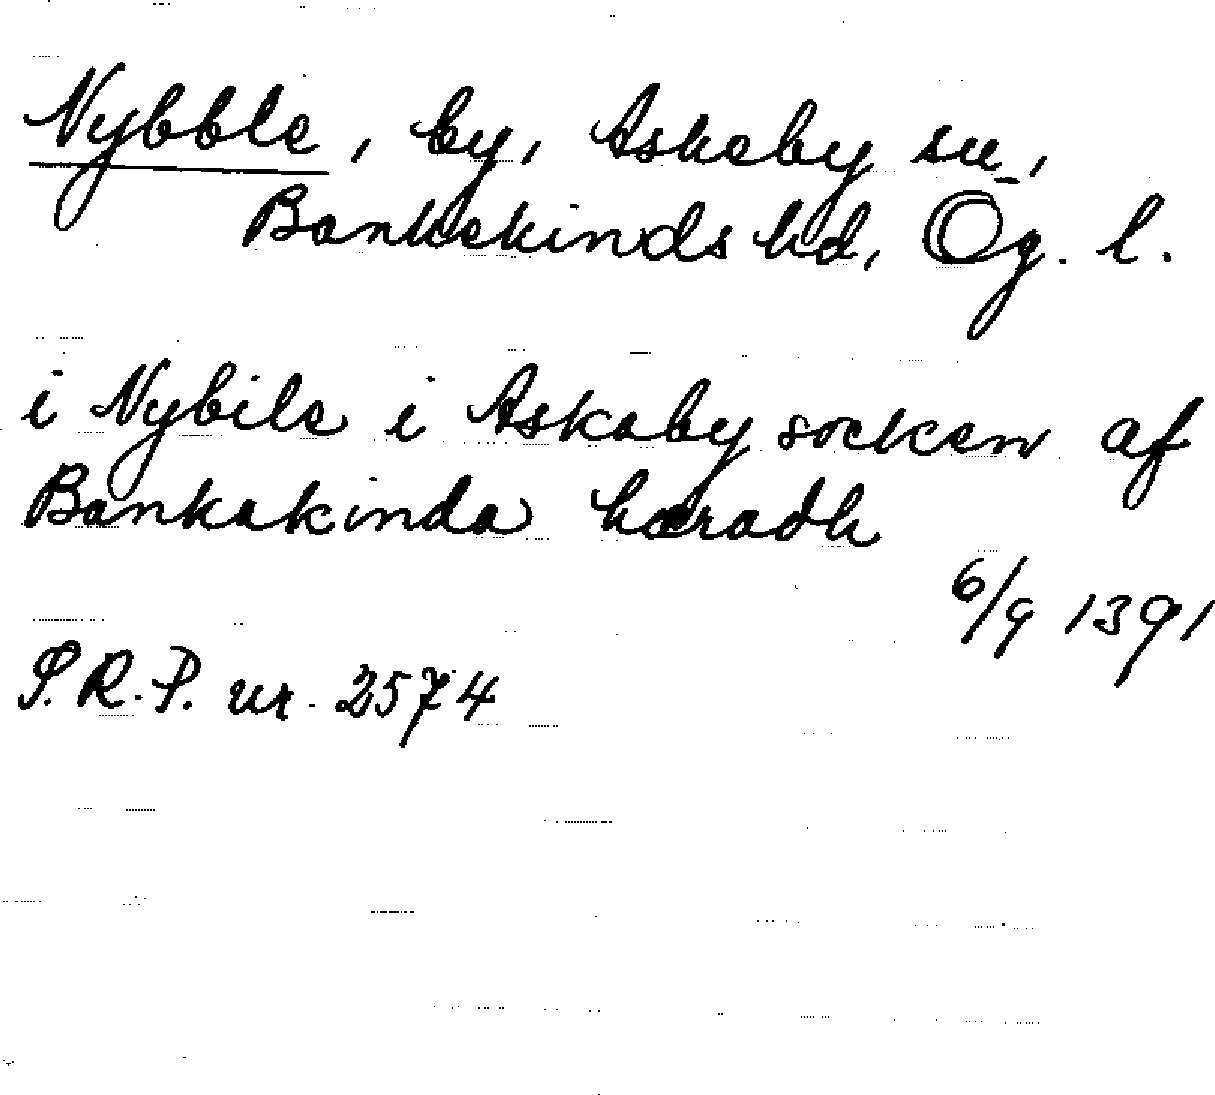 Nybble, by, Askeby sn,
Bankekinds hd, Ög. l.
i Nybile i Askaby socken af
Bankakinda hæradh
6/9 1391
S.R.P. nr. 2574